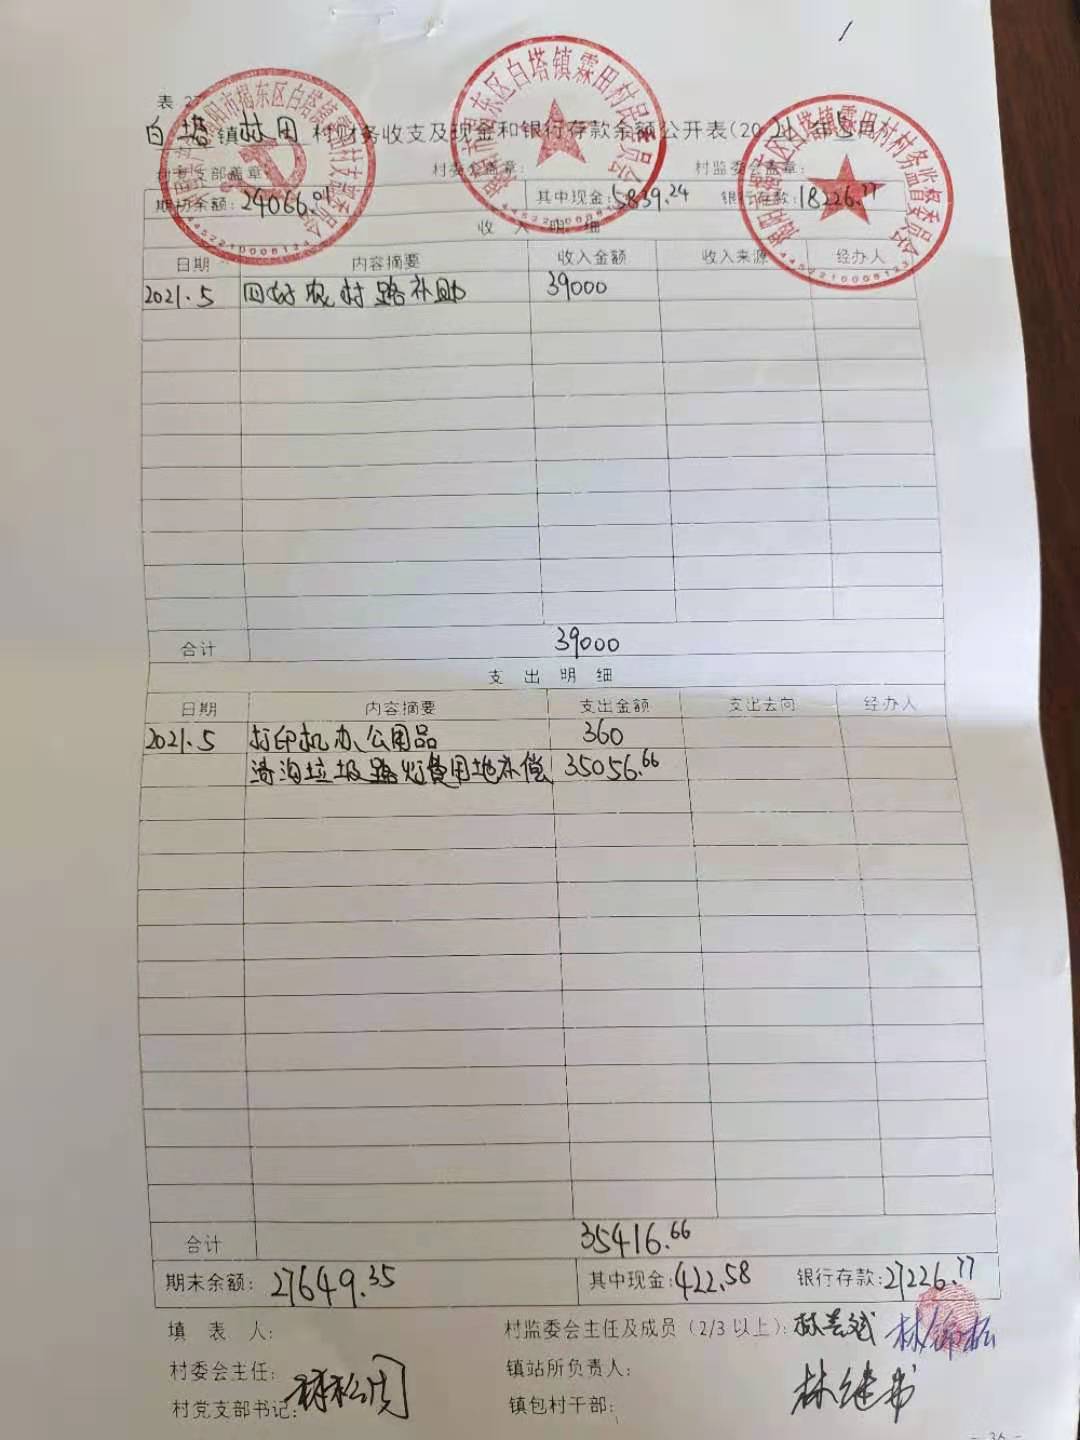 表 2
白塔镇林田村财务收支及现金和银行存款余额公开表(2021年5月)
村党支部盖章: 村委会盖章: 村监委会盖章:
期初余额: 24066.01 其中现金: 5839.24 银行存款: 18226.77
收 入 明 细
日期 内容摘要 收入金额 收入来源 经办人
2021.5 四好农村路补助 39000
合计 39000
支 出 明 细
日期 内容摘要 支出金额 支出去向 经办人
2021.5 打印机办公用品 360
清淘垃圾路灯费用地补偿 35056.66
合计 35416.66
期末余额: 27649.35 其中现金: 422.58 银行存款: 27226.77
填 表 人: 村监委会主任及成员(2/3以上):
村委会主任: 镇站所负责人:
村党支部书记: 镇包村干部: 林继书
- 36 -